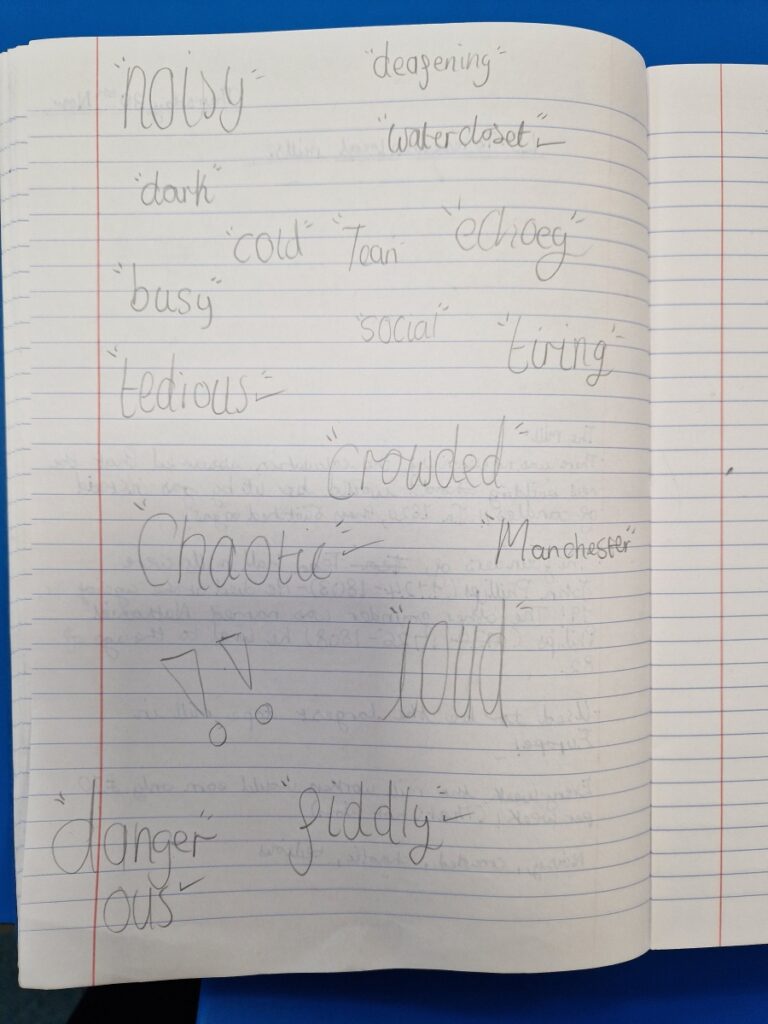 "noisy"
"deafening"
"watercloset"
"dark"
"cold" "Tean" "echoey"
"busy"
"social"
"tiring"
"tedious"
"crowded"
"Chaotic"
"Manchester"
"loud"
!!
"fiddly"
"danger
ous"